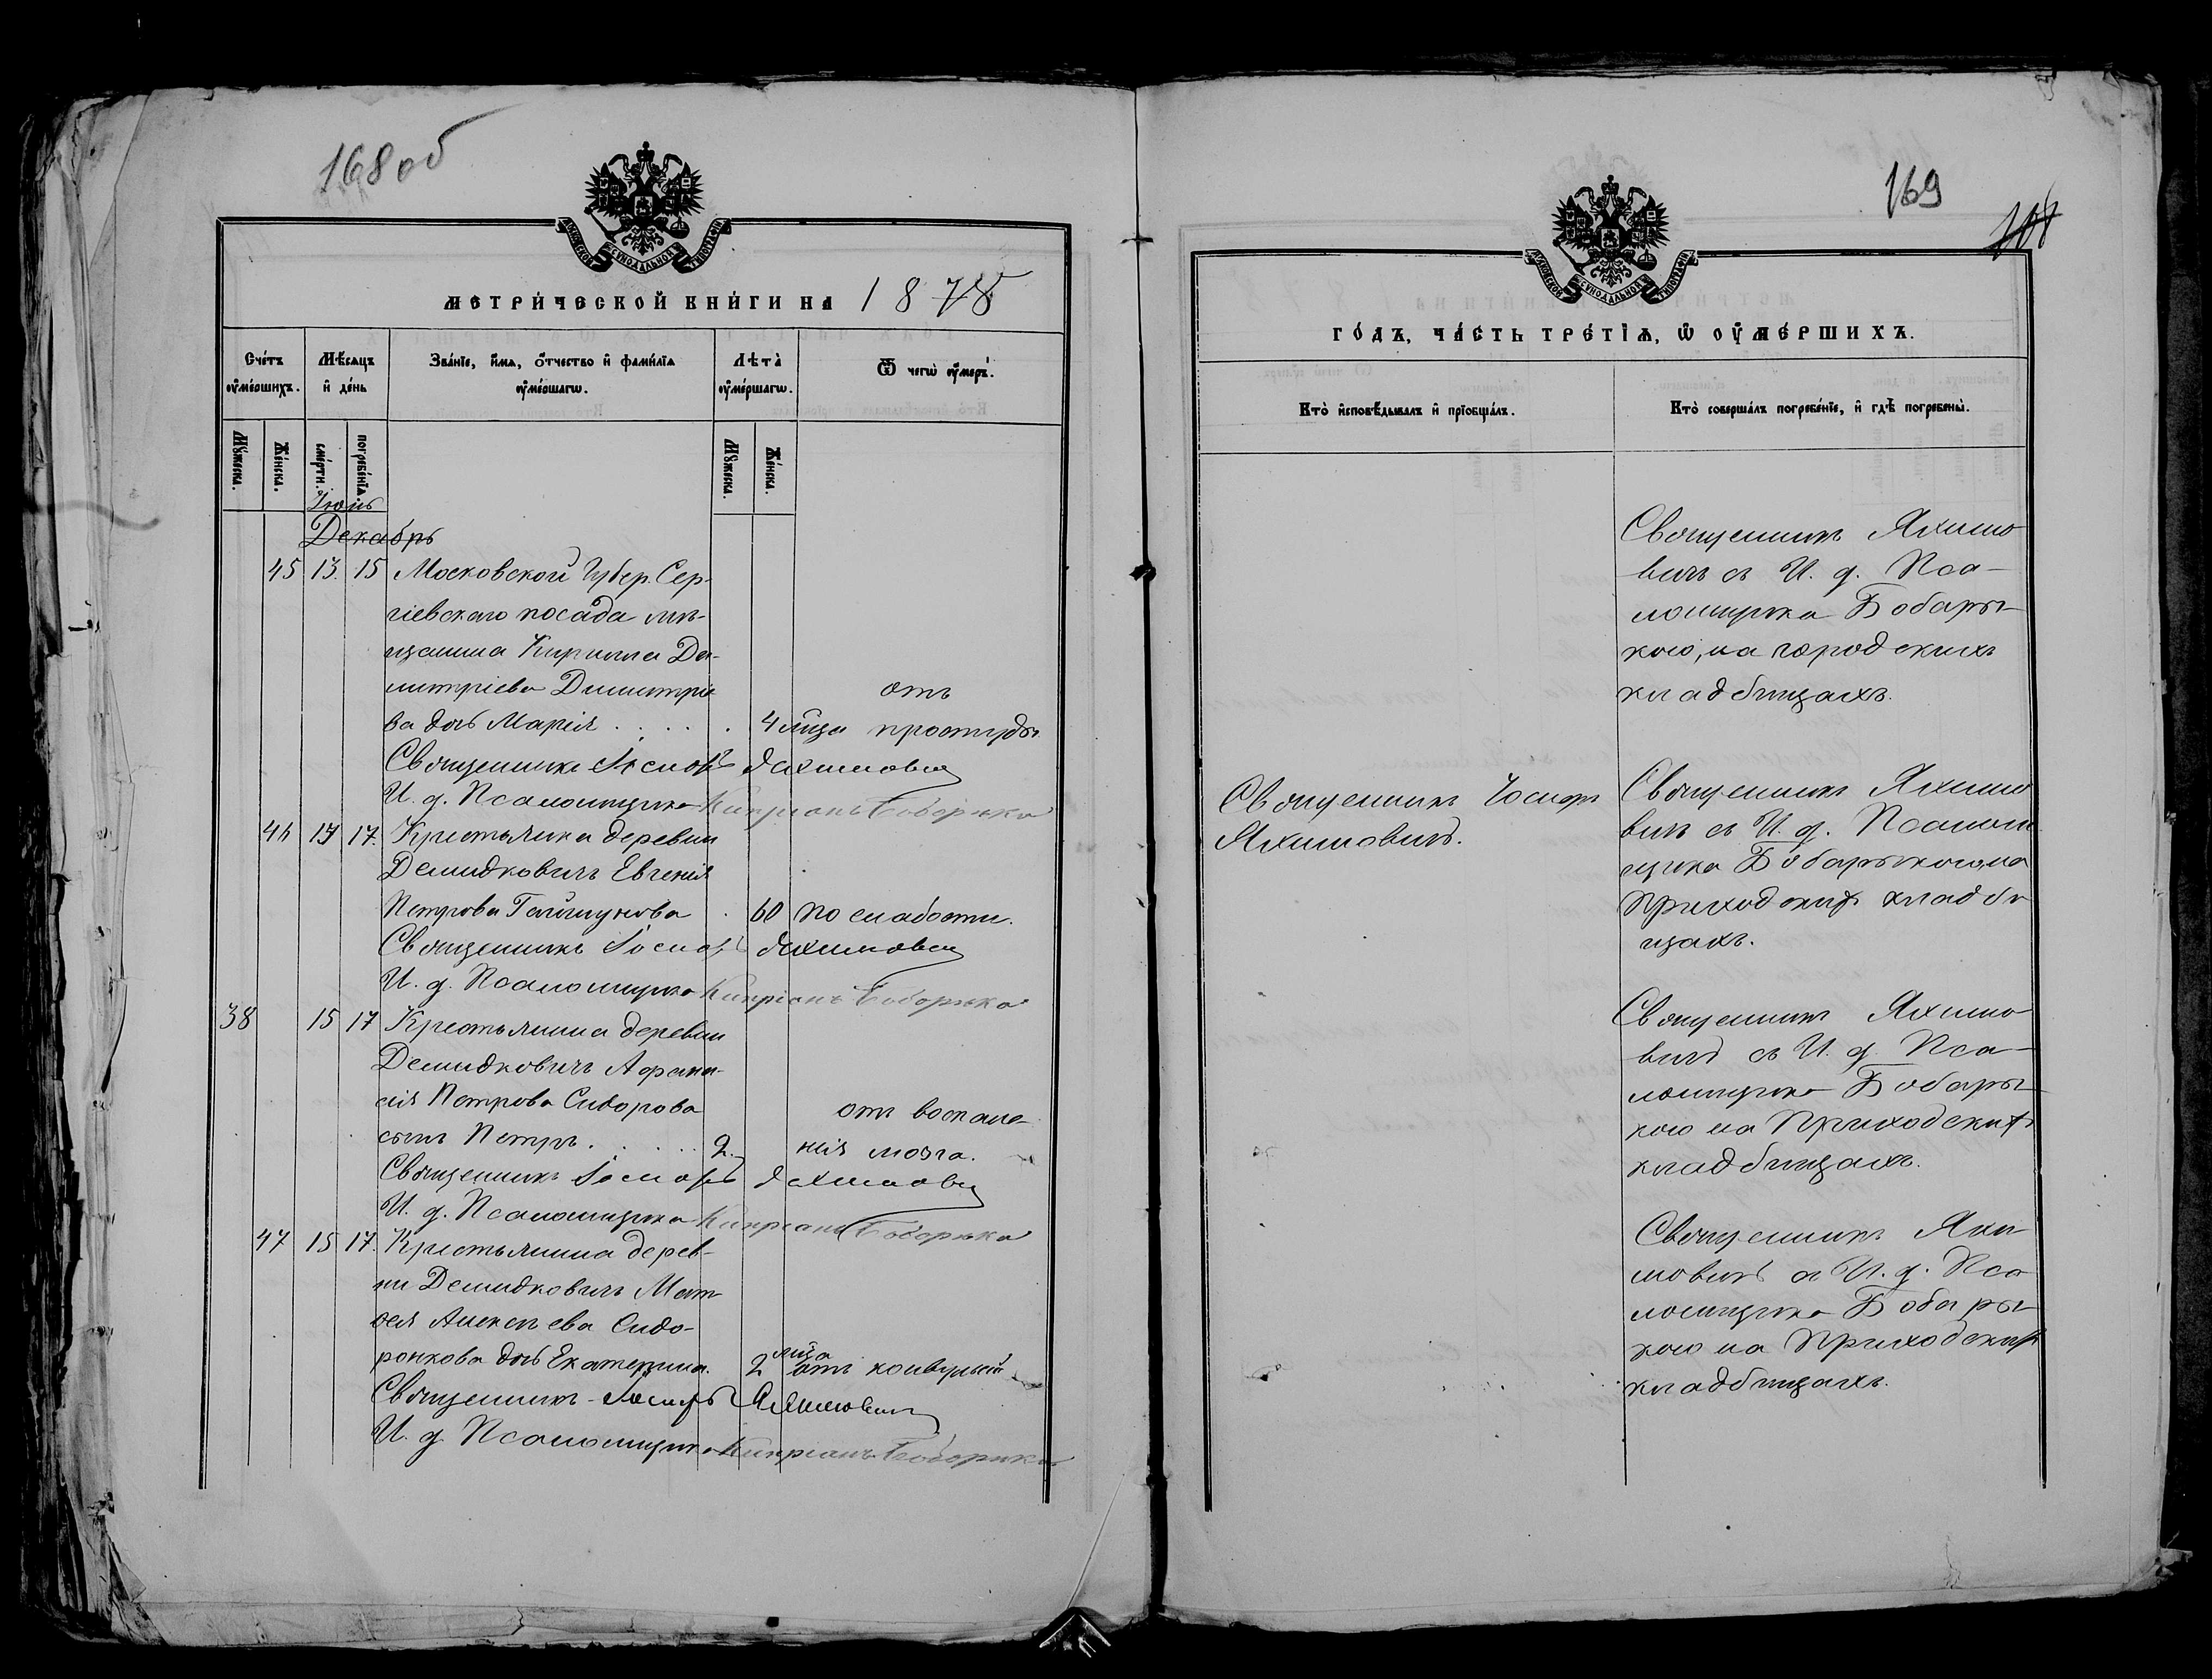 168 об
МОСКОВСКОЙ СѴНОДАЛЬНОЙ ТИПОГРАФІИ
МЕТРИ́ЧЕСКОЙ КНИ́ГИ НА 1878
Сче́тъ ᲂу҆ме́ршихъ.
Мѣ́сѧцъ и҆ де́нь
Зва́нїе, и҆́мѧ, ѻ҆́тчество и҆ фами́лїѧ ᲂу҆ме́ршагѡ.
Лѣ́та ᲂу҆ме́ршагѡ.
Ѿ чегѡ̀ ᲂу҆́меръ.
Мꙋ́жеска.
Же́нска.
сме́рти.
погребе́нїѧ.
Мꙋ́жеска.
Же́нска.
Іюнь
Декабрь
45 13. 15 Московской Губер. Сер-
гіевскаго посада мѣ-
щанина Кирилла Ди-
митріева Димитріе
ва дочь Марія . . . . . 4 мѣца отъ простуды
Священникъ Іосифъ Яхимович
И. д. Псаломщика Кипріанъ Боборыко
17. Крестьянка деревни
Демидковичъ Евгенія
Петрова 60 по слабости.
Священникъ Іосифъ Яхимович
И. д. Псаломщика Кипріанъ Боборыко
38 15 17 Крестьянина деревни
Демидковичъ Афана-
сія Петрова Сидорова
сынъ Петръ . . . . . 2. отъ воспале-
нія мозга.
Священникъ Іосифъ Яхимович
И. д. Псаломщика Кипріанъ Боборыко
47 15 17. Крестьянина дерев-
ни Демидковичъ Мат-
ѳея Алексѣева Сидо-
ронкова дочь Екатерина. 2 мѣца отъ конвульсій
Священникъ Іосифъ Яхимович
И. д. Псаломщика Кипріанъ Боборыко
169
108
МОСКОВСКОЙ СѴНОДАЛЬНОЙ ТИПОГРАФІИ
ГО́ДЪ, ЧА́СТЬ ТРЕ́ТЇѦ, Ѡ҆ ОУ҆МЕ́РШИХЪ.
Кто̀ и҆сповѣ́дывалъ и҆ прїѡбща́лъ.
Кто̀ соверша́лъ погребе́нїе, и҆ гдѣ̀ погребены̀.
Священникъ Яхимо
вичъ съ И. д. Пса-
ломщика Бобары-
кою, на городскихъ
кладбищахъ.
Священникъ Іосифъ
Яхимовичъ.
Священникъ Яхимо
вичъ съ И. д. Псалом
щика Бобарыкою, на
Приходскихъ кладби
щахъ.
Священникъ Яхимо
вичъ съ И. д. Пса-
ломщика Бобары-
кою на Приходскихъ
кладбищахъ.
Священникъ Яхи-
мовичъ съ И. д. Пса
ломщика Бобары-
кою на Приходскихъ
кладбищахъ.